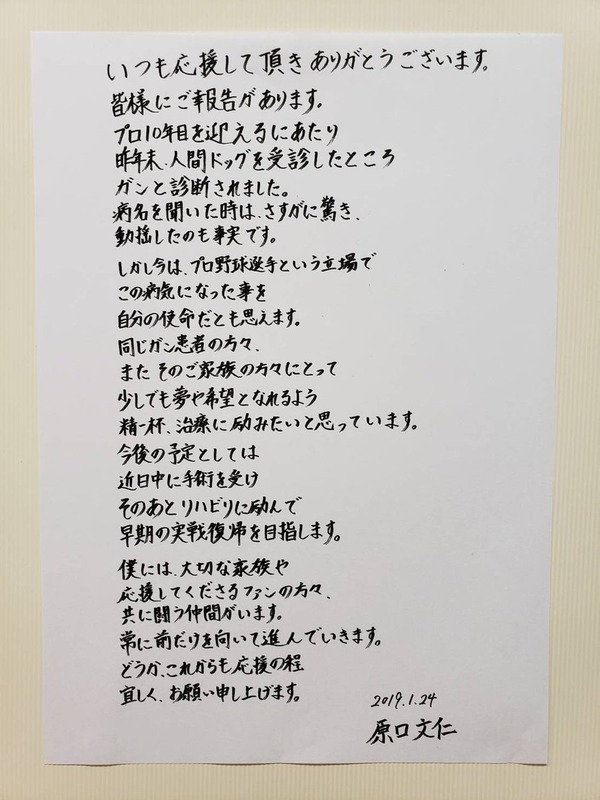 いつも応援して頂きありがとうございます。
皆様にご報告があります。
プロ10年目を迎えるにあたり
昨年末、人間ドッグを受診したところ
ガンと診断されました。
病名を聞いた時は、さすがに驚き、
動揺したのも事実です。
しかし今は、プロ野球選手という立場で
この病気になった事を
自分の使命だとも思えます。
同じガン患者の方々、
また そのご家族の方々にとって
少しでも夢や希望となれるよう
精一杯、治療に励みたいと思っています。
今後の予定としては
近日中に手術を受け
そのあとリハビリに励んで
早期の実戦復帰を目指します。
僕には、大切な家族や
応援してくださるファンの方々、
共に闘う仲間がいます。
常に前だけを向いて進んでいきます。
どうか、これからも応援の程
宜しく、お願い申し上げます。
2019.1.24
原口文仁